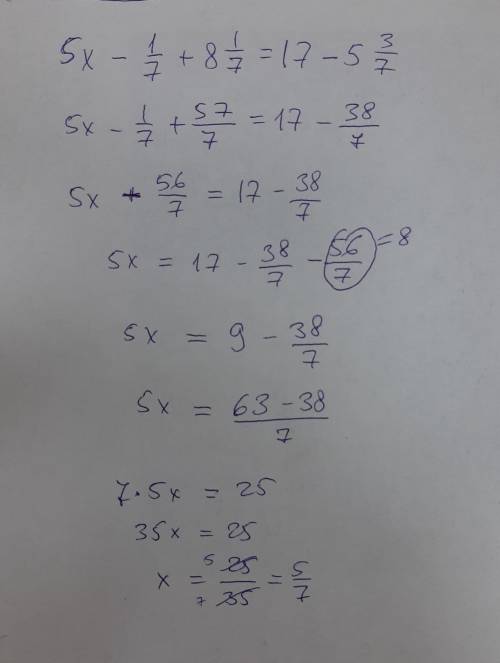 5x - 1/7 + 8 1/7 = 17 - 5 3/7
5x - 1/7 + 57/7 = 17 - 38/7
5x + 56/7 = 17 - 38/7
5x = 17 - 38/7 - 56/7 = 8
5x = 9 - 38/7
5x = (63 - 38)/7
7 · 5x = 25
35x = 25
x = 5 25/7 35 = 5/7